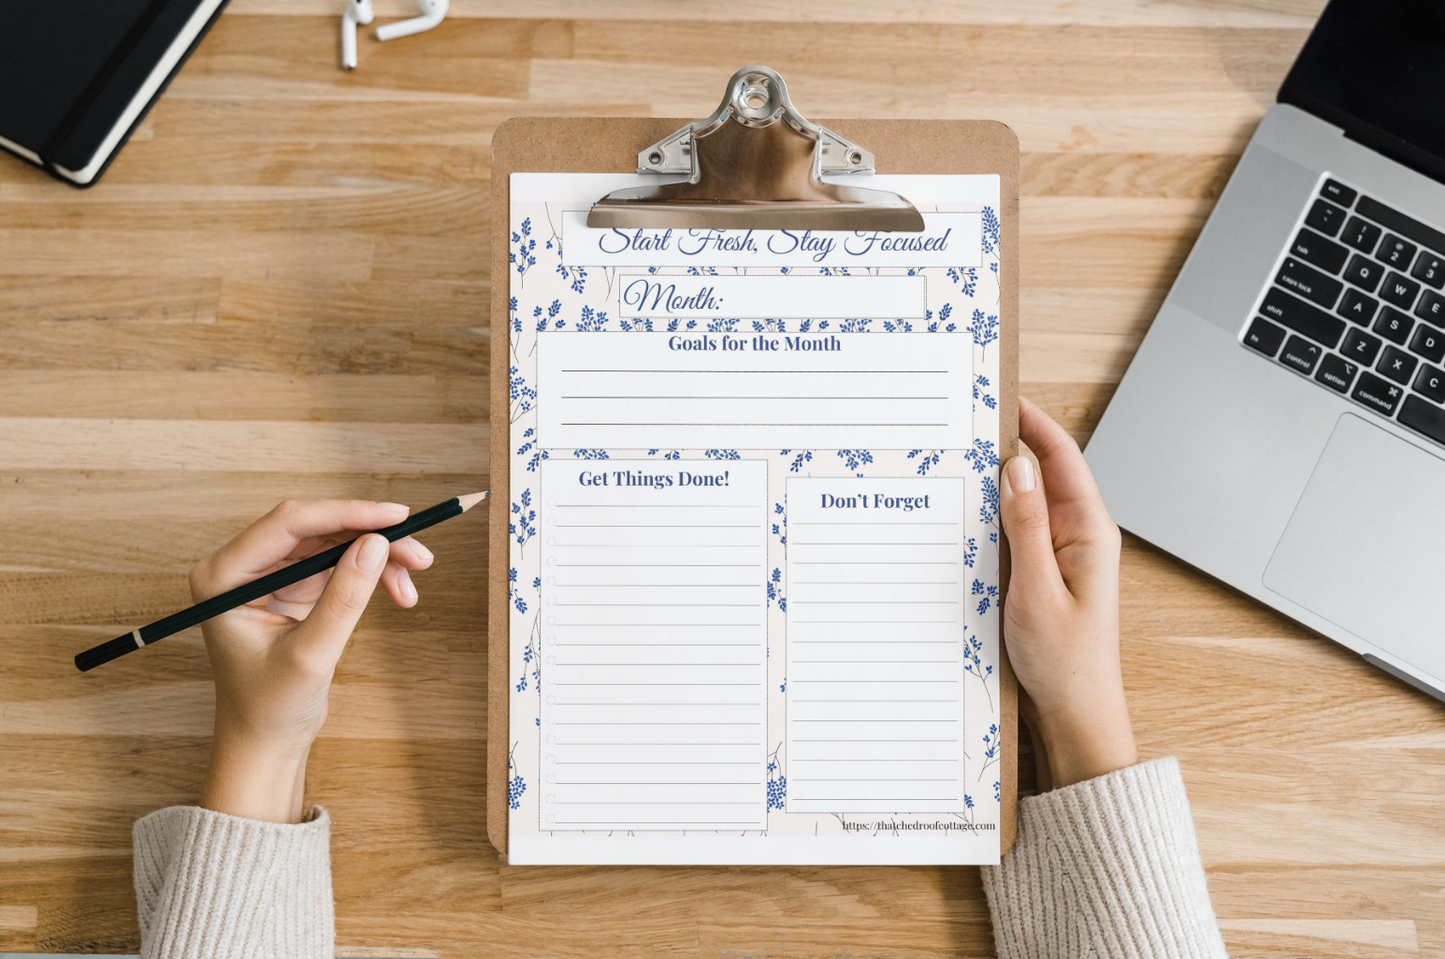 Start Fresh, Stay Focused
Month:
Goals for the Month
Get Things Done!
Don't Forget
https://thatchedroofcottage.com
esc
tab
caps lock
shift
fn
control
option
command
!
1
@
2
#
3
Q
W
E
A
S
D
Z
X
C